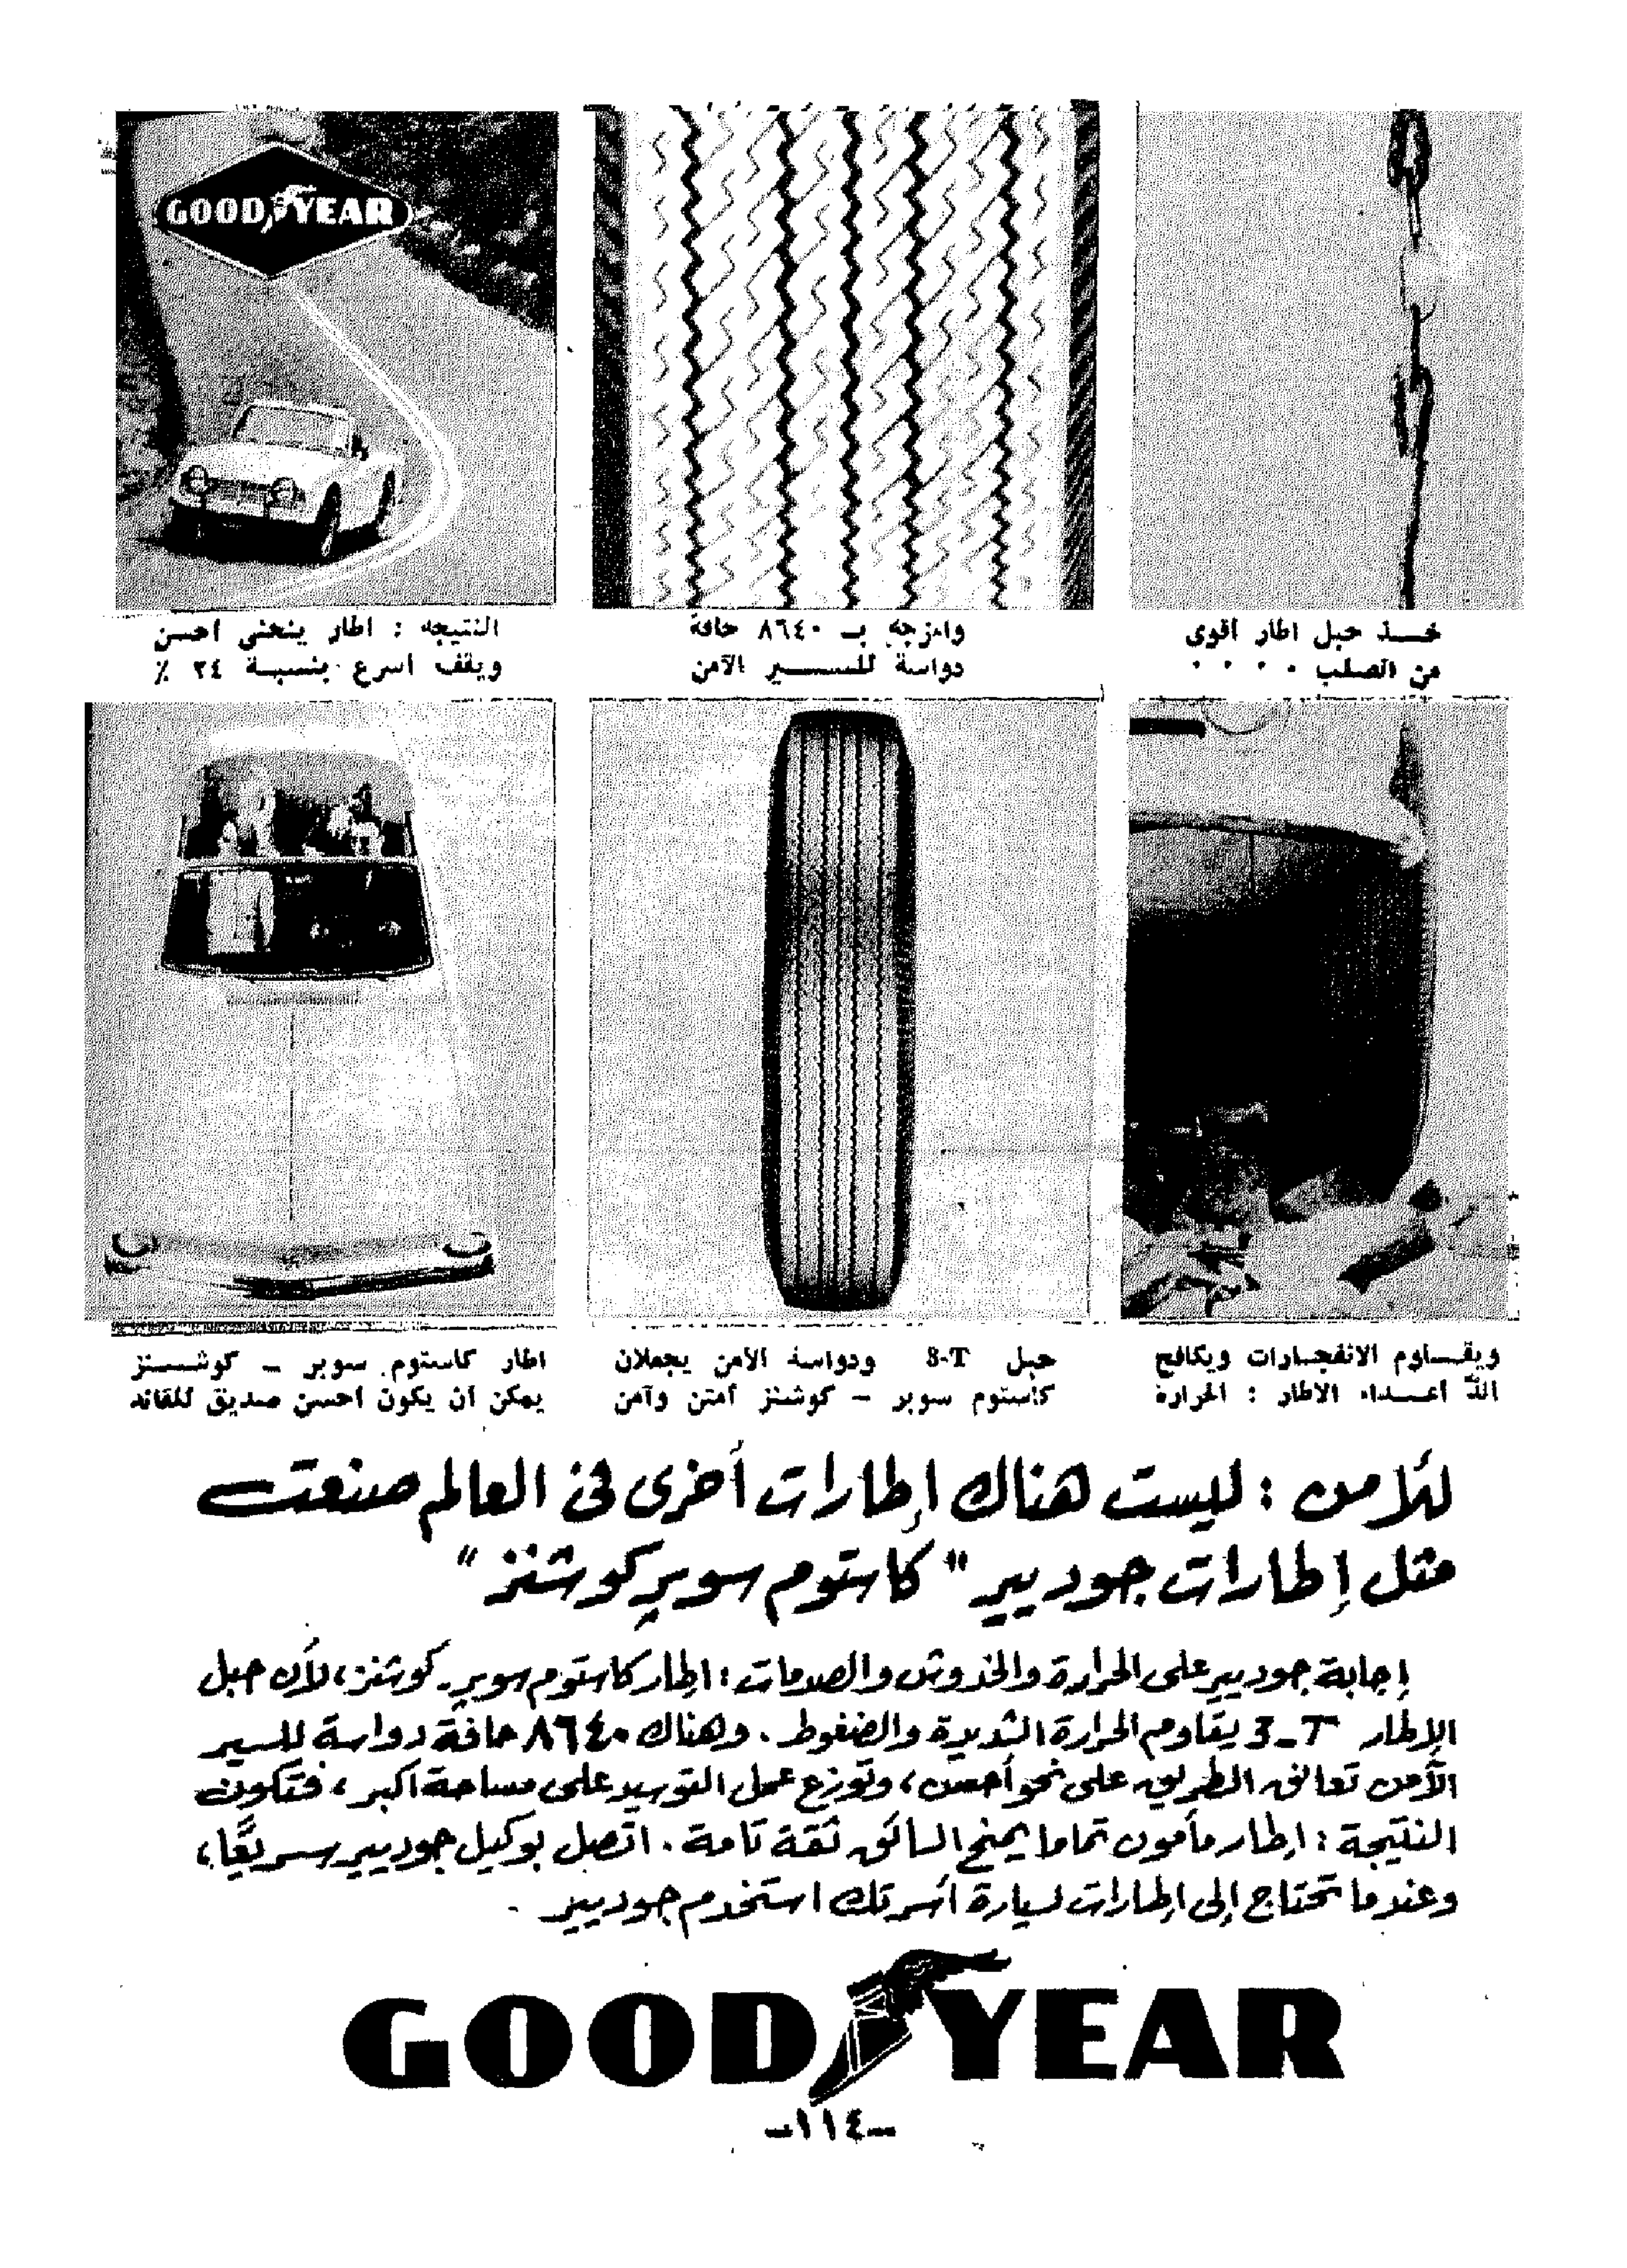 GOOD YEAR
خـــذ حبل اطار أقوى
من الصلب ٠ ٠ ٠ ٠ ٠
وامزجه بـ ٨٦٤٠ حافة
دواسة للســــــير الآمن
النتيجه : اطار ينحنى احسن
ويقف أسرع بنسبة ٣٤ ٪
ويقـــاوم الانفجـارات ويكافح
ألدّ أعـــداء الاطار : الحرارة
حبل 3-T ودواسة الأمن يجعلان
كاستوم سوبر - كوشنز أمتن وآمن
اطار كاستوم سوبر - كوشـــنز
يمكن أن يكون أحسن صديق للقائد
للأمن : ليست هناك إطارات أخرى فى العالم صنعت
مثل إطارات جوديير "كاستوم سوبر كوشنز"
إجابة جوديير على الحرارة والخدوش والصدمات : اطار كاستوم سوبر - كوشنز ، لأن حبل
الإطار 3-T يقاوم الحرارة الشديدة والضغوط . وهناك ٨٦٤٠ حافة دواسة للسير
الآمن تعانق الطريق على نحو أحسن ، وتوزع عمل التوسيد على مساحة اكبر ، فتكون
النتيجة : إطار مأمون تماما يمنح السائق ثقة تامة . اتصل بوكيل جوديير سريعًا ،
وعندما تحتاج إلى إطارات لسيارة أسرتك استخدم جوديير .
GOOD YEAR
-١١٤-